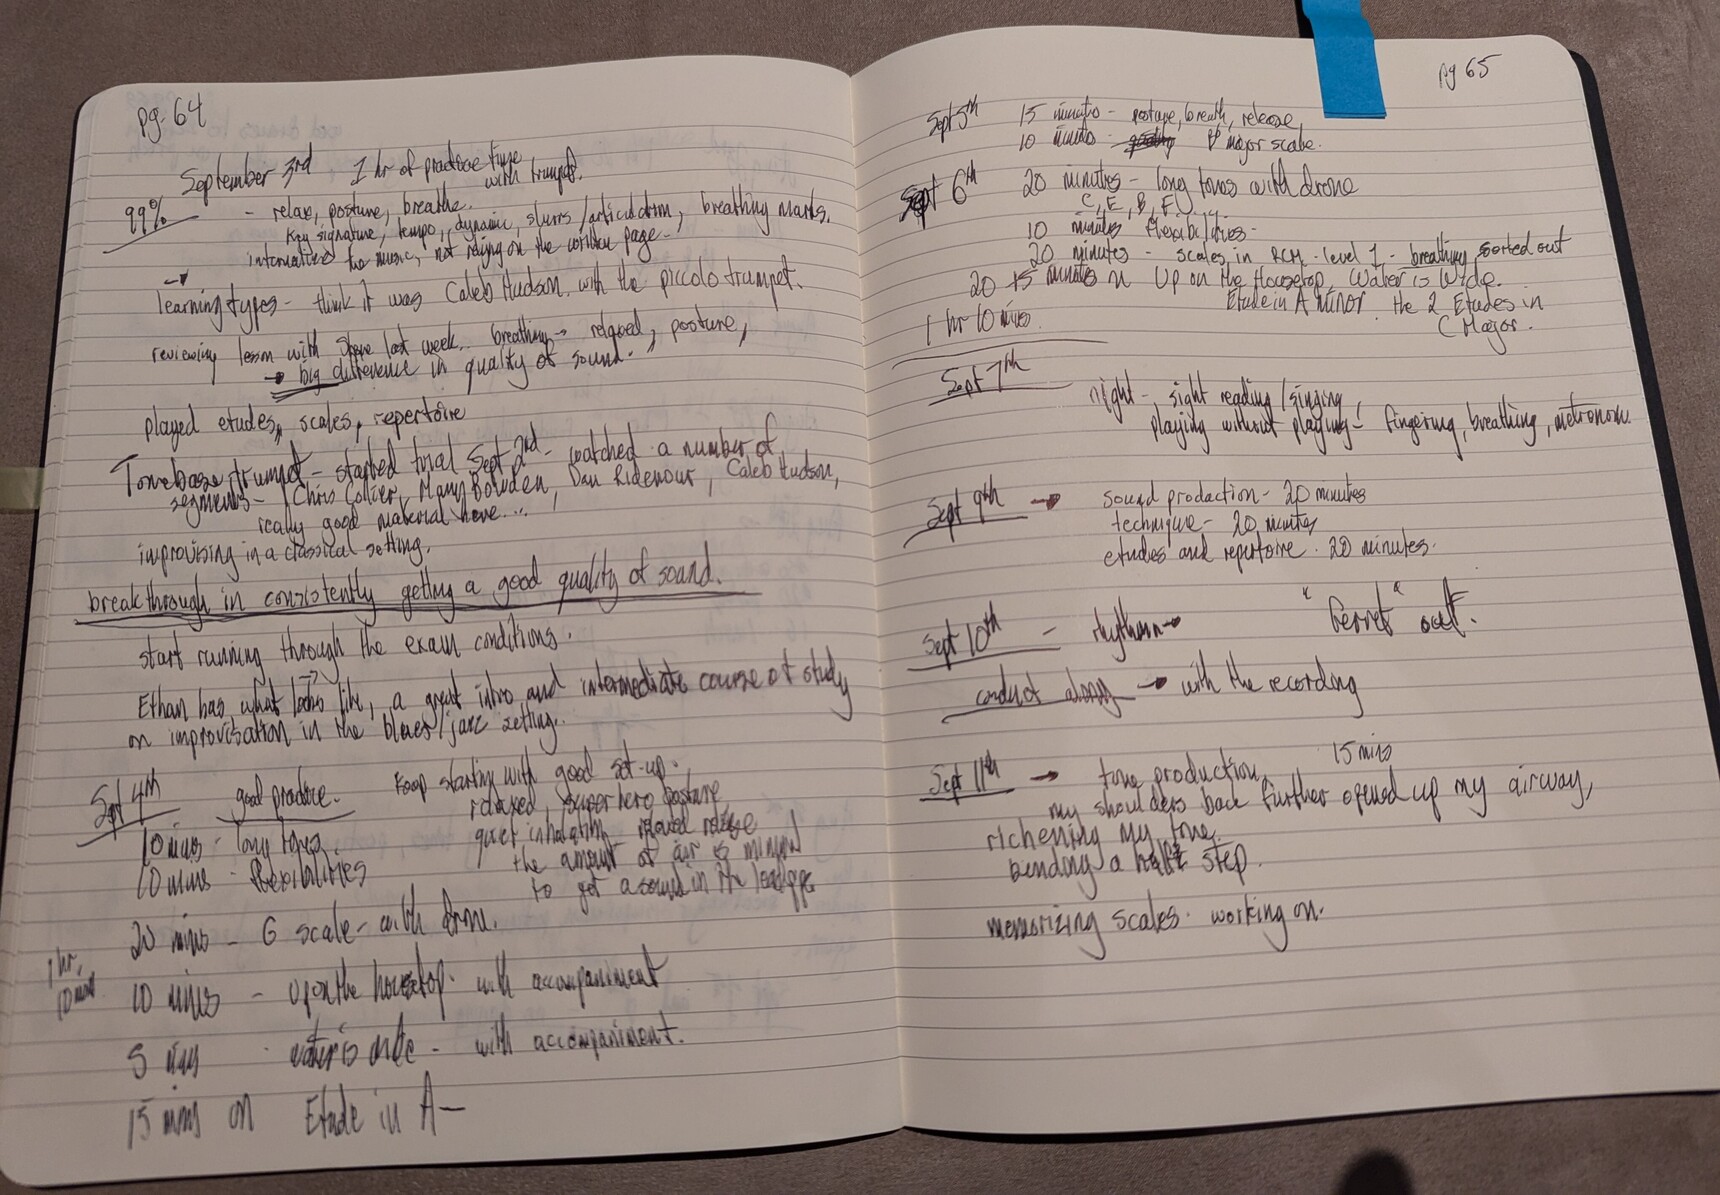 pg. 64
September 3rd 1 hr of practice time
with trumpet.
99% - relax, posture, breathe.
key signature, tempo, dynamic, slurs/articulation, breathing marks.
internalized the music, not relying on the written page.
→
learning types - think it was Caleb Hudson. with the piccolo trumpet.
reviewing lesson with Steve last week. breathing → relaxed, posture,
→ big difference in quality of sound.
played etudes, scales, repertoire
Tonebase trumpet - started trial Sept 2nd - watched a number of
segments - Chris Coletti, Mary Bowden, Dan Ridenour, Caleb Hudson,
really good material here...
improvising in a classical setting.
breakthrough in consistently getting a good quality of sound.
start running through the exam conditions.
Ethan has what looks like, a great intro and intermediate course of study
on improvisation in the blues/jazz setting.
Sept 4th good practice. Keep starting with good set-up.
relaxed, superhero posture,
10 mins - long tones. quiet inhalation, relaxed release
10 mins - flexibilities the amount of air is minimal
to get a sound in the leadpipe
20 mins - G scale - with drone.
1 hr,
10 mins
10 mins - Up on the housetop. with accompaniment
5 min - water is wide - with accompaniment.
15 mins on Etude in A-
pg 65
Sept 5th 15 minutes - posture, breath, release,
10 minutes - Bb major scale.
Sept 6th 20 minutes - long tones with drone
C, E, B, F
10 minutes flexibilities.
20 minutes - scales in RCM - level 1 - breathing sorted out
20 15 minutes on Up on the Housetop, Water is Wide.
Etude in A minor. the 2 Etudes in
C Major.
1 hr 10 mins.
Sept 7th
night - sight reading/singing
playing without playing - fingering, breathing, metronome.
Sept 9th → sound production - 20 minutes
technique - 20 minutes
etudes and repertoire. 20 minutes.
Sept 10th - rhythm → " " out.
conduct along → with the recording
Sept 11th → tone production 15 mins
my shoulders back further opened up my airway,
richening my tone.
bending a half step.
memorizing scales. working on.